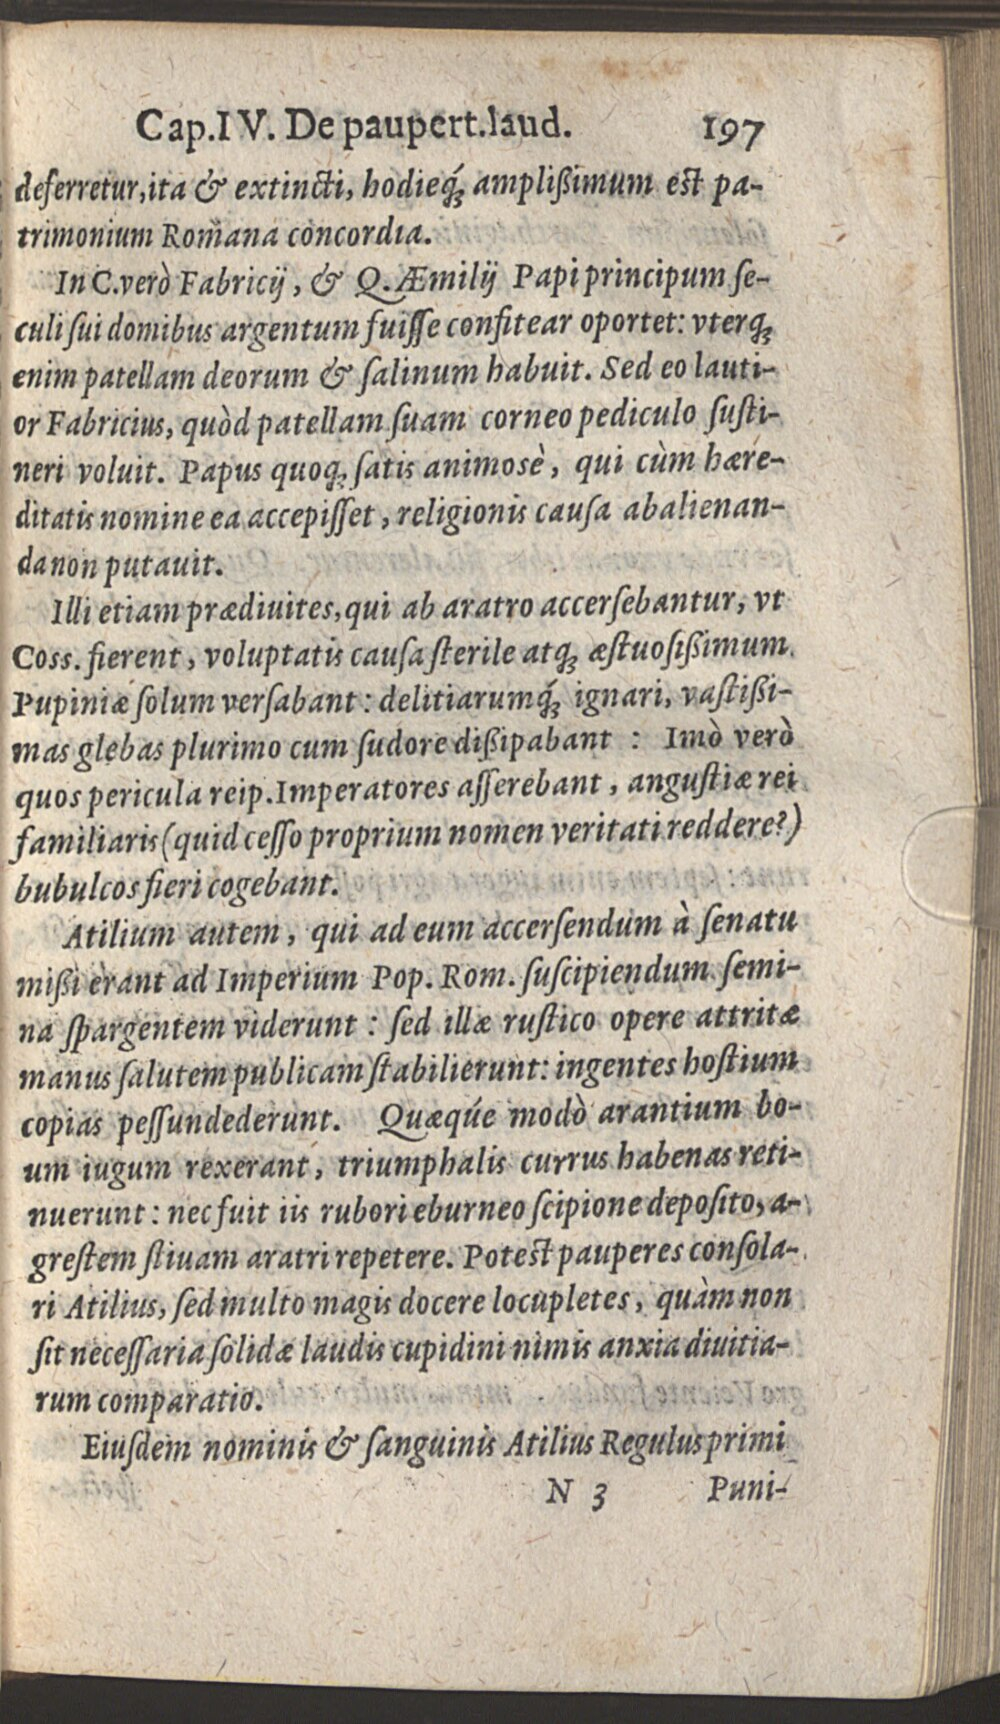 Cap.IV. De paupert.laud. 197
deferretur,ita & extincti, hodieq́; amplißimum est pa-
trimonium Romana concordia.
In C.verò Fabricij, & Q.Æmilij Papi principum ſe-
culi ſui domibus argentum fuiſſe confitear oportet: vterq;
enim patellam deorum & ſalinum habuit. Sed eo lauti-
or Fabricius, quòd patellam ſuam corneo pediculo ſuſti-
neri voluit. Papus quoq; ſatis animosè, qui cùm hære-
ditatis nomine ea accepiſſet, religionis cauſa abalienan-
da non putauit.
Illi etiam prædiuites,qui ab aratro accerſebantur, vt
Coss. fierent, voluptatis cauſa ſterile atq; æſtuoſißimum
Pupiniæ ſolum verſabant: delitiarumq́; ignari, vaſtißi-
mas glebas plurimo cum ſudore dißipabant : Imò verò
quos pericula reip.Imperatores aſſerebant, anguſtiæ rei
familiaris(quid ceſſo proprium nomen veritati reddere?)
bubulcos fieri cogebant.
Atilium autem, qui ad eum accerſendum à ſenatu
mißi erant ad Imperium Pop. Rom. ſuſcipiendum ſemi-
na ſpargentem viderunt : ſed illæ ruſtico opere attritæ
manus ſalutem publicam ſtabilierunt: ingentes hoſtium
copias peſſundederunt. Quæqúe modò arantium bo-
um iugum rexerant, triumphalis currus habenas reti-
nuerunt: nec fuit iis rubori eburneo ſcipione depoſito, a-
greſtem ſtiuam aratri repetere. Potest pauperes conſola-
ri Atilius, ſed multo magis docere locupletes, quàm non
ſit neceſſaria ſolidæ laudis cupidini nimis anxia diuitia-
rum comparatio.
Eiuſdem nominis & ſanguinis Atilius Regulus primi
N 3 Puni-